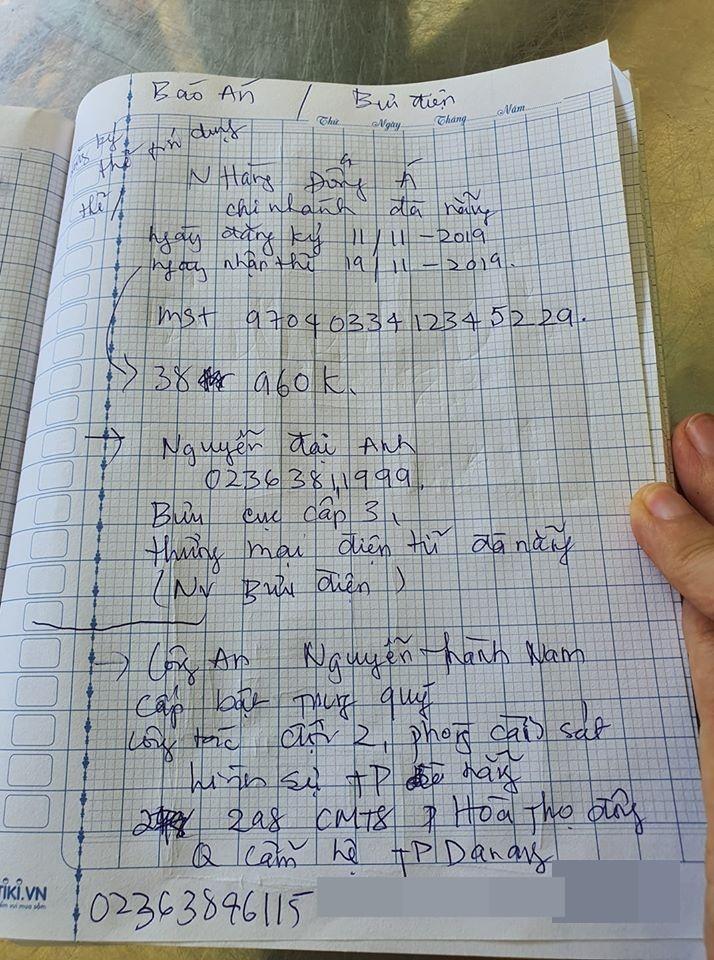 Báo Án / Bưu điện
Thứ Ngày Tháng Năm
thẻ tín dụng
N Hàng Đông Á
thẻ /
chi nhánh đà nẵng
ngày đăng ký 11/11-2019
ngày nhận thẻ 19/11-2019.
mst 9704 0334 1234 5229.
→ 38 960K.
→ Nguyễn đại Anh
0236 381,1999.
Bưu cục cấp 3,
thương mại điện tử đà nẵng
(NV Bưu điện)
→ Công An Nguyễn thành Nam
cấp bật trung quý
công tác đội 2, phòng cảnh sát
hình sự TP nẵng
298 CMT8 P Hoà Thọ đông
Q cẩm lệ TP Danang
TIKI.VN
02363846115